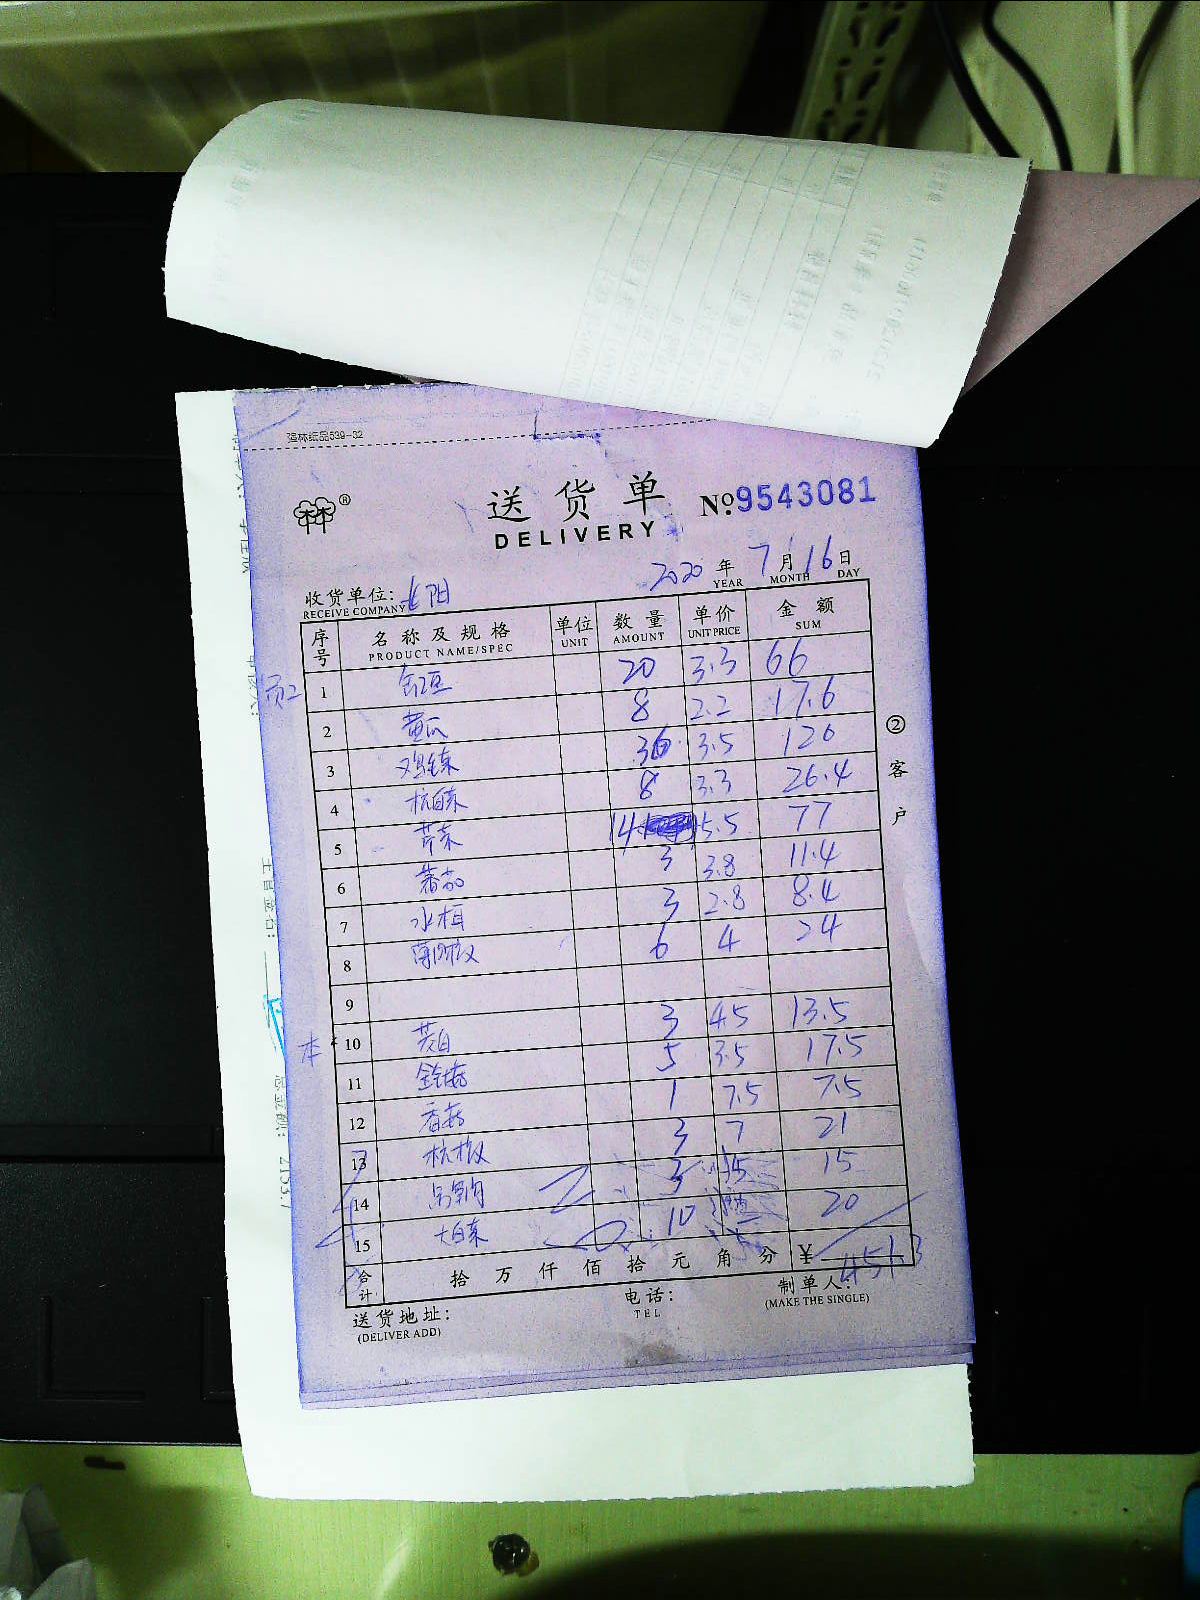 强林纸品539-32
送货单 No.9543081
DELIVERY
2020年7月16日
YEAR MONTH DAY
收货单位:
RECEIVE COMPANY
序号 名称及规格 单位 数量 单价 金额
PRODUCT NAME/SPEC UNIT AMOUNT UNIT PRICE SUM
1 20 3.3 66
2 黄瓜 8 2.2 17.6
3 36 3.5 126
4 杭白菜 8 3.3 26.4
5 芹菜 14 5.5 77
6 蕃茄 3 3.8 11.4
7 3 2.8 8.4
8 6 4 24
9
10 茭白 3 4.5 13.5
11 金针菇 5 3.5 17.5
12 香菇 1 7.5 7.5
13 杭椒 3 7 21
14 3 15
15 大白菜 10 20
合计 拾万仟佰拾元角分 ¥ 451.3
送货地址: 电话: 制单人:
(DELIVER ADD) TEL (MAKE THE SINGLE)
②客户